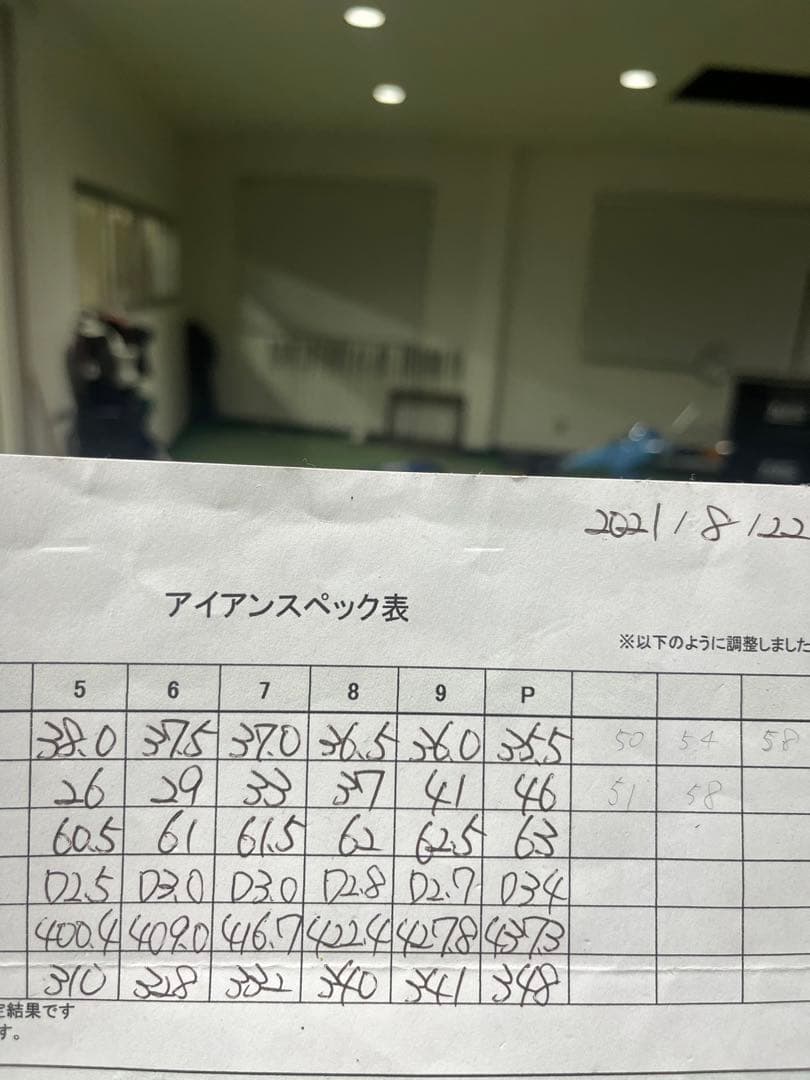 2021/8/22
アイアンスペック表
※以下のように調整しました
5 6 7 8 9 P
38.0 37.5 37.0 36.5 36.0 35.5 50 54 58
26 29 33 37 41 46 51 58
60.5 61 61.5 62 62.5 63
D2.5 D3.0 D3.0 D2.8 D2.7 D3.4
400.4 409.0 416.7 422.4 427.8 437.3
310 328 332 340 341 348
定結果です
す。